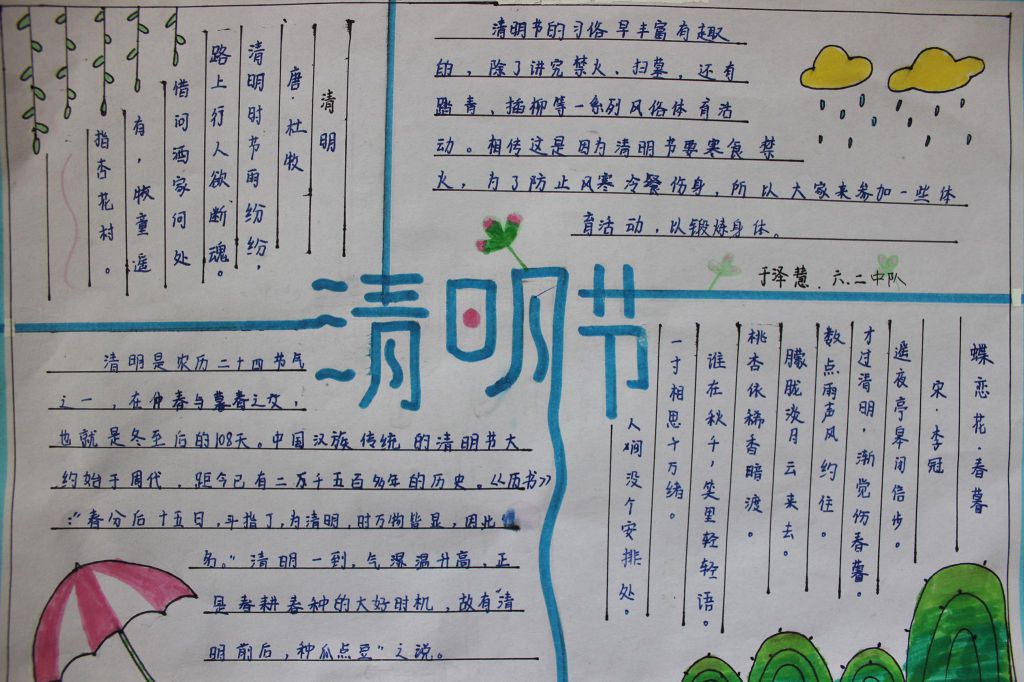 清明
唐·杜牧
清明时节雨纷纷，
路上行人欲断魂。
借问酒家何处
有，牧童遥
指杏花村。
清明节的习俗早丰富有趣
的，除了讲究禁火、扫墓，还有
踏青、插柳等一系列风俗体育活
动。相传这是因为清明节要寒食禁
火，为了防止风寒冷餐伤身，所以大家来参加一些体
育活动，以锻炼身体。
于泽慧.六.二中队
清明节
清明是农历二十四节气
之一，在仲春与暮春之交，
也就是冬至后的108天。中国汉族传统的清明节大
约始于周代，距今已有二万千五百多年的历史。《历书》
：“春分后十五日，斗指丁，为清明，时万物皆显，因此
名。”清明一到，气温升高，正
是春耕春种的大好时机，故有“清
明前后，种瓜点豆”之说。
蝶恋花·春暮
宋·李冠
遥夜亭皋闲信步。
才过清明，渐觉伤春暮。
数点雨声风约住。
朦胧淡月云来去。
桃杏依稀香暗渡。
谁在秋千，笑里轻轻语。
一寸相思千万绪。
人间没个安排处。